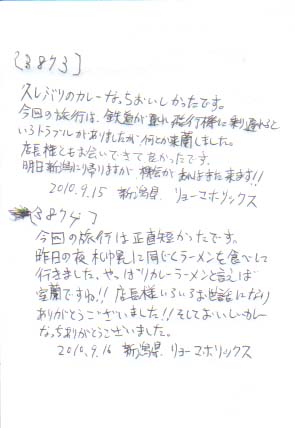 [3873]
久しぶりのカレーなっちおいしかったです。
今回の旅行は、鉄道が遅れ飛行機に乗り遅れると
いうトラブルがありましたが、何とか来蘭しました。
店長様ともお会いできてよかったです。
明日新潟に帰りますが、機会があればまた来ます!!
2010.9.15 新潟県 リョーマホリックス
[3874]
今回の旅行は正直短かったです。
昨日の夜、札幌に同じくラーメンを食べして
行きました。やっぱりカレーラーメンと言えば
室蘭ですね!! 店長様いろいろお世話になり
ありがとうございました!! そしておいしいカレー
なっちありがとうございました。
2010.9.16 新潟県 リョーマホリックス